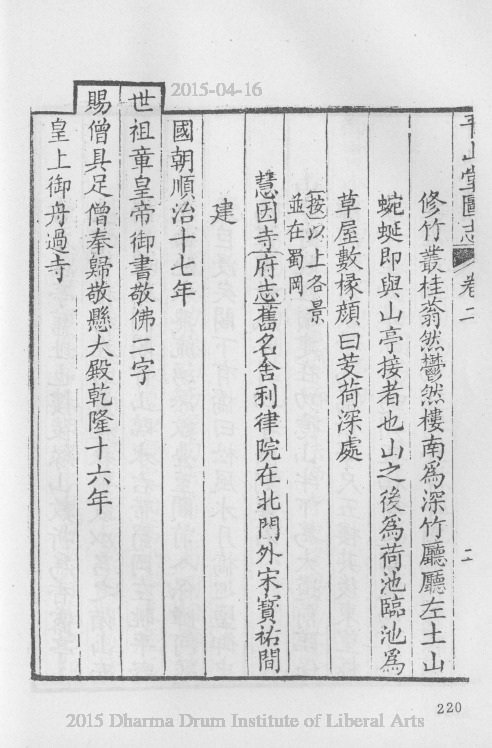 2015-04-16
平山堂圖志 卷二 二
修竹叢桂蓊然鬱然樓南爲深竹廳廳左土山
蜿蜒即與山亭接者也山之後爲荷池臨池爲
草屋數椽顏曰芰荷深處
按以上各景
並在蜀岡
慧因寺府志舊名舍利律院在北門外宋寳祐間
建
國朝順治十七年
世祖章皇帝御書敬佛二字
賜僧具足僧奉歸敬懸大殿乾隆十六年
皇上御舟過寺
220
2015 Dharma Drum Institute of Liberal Arts